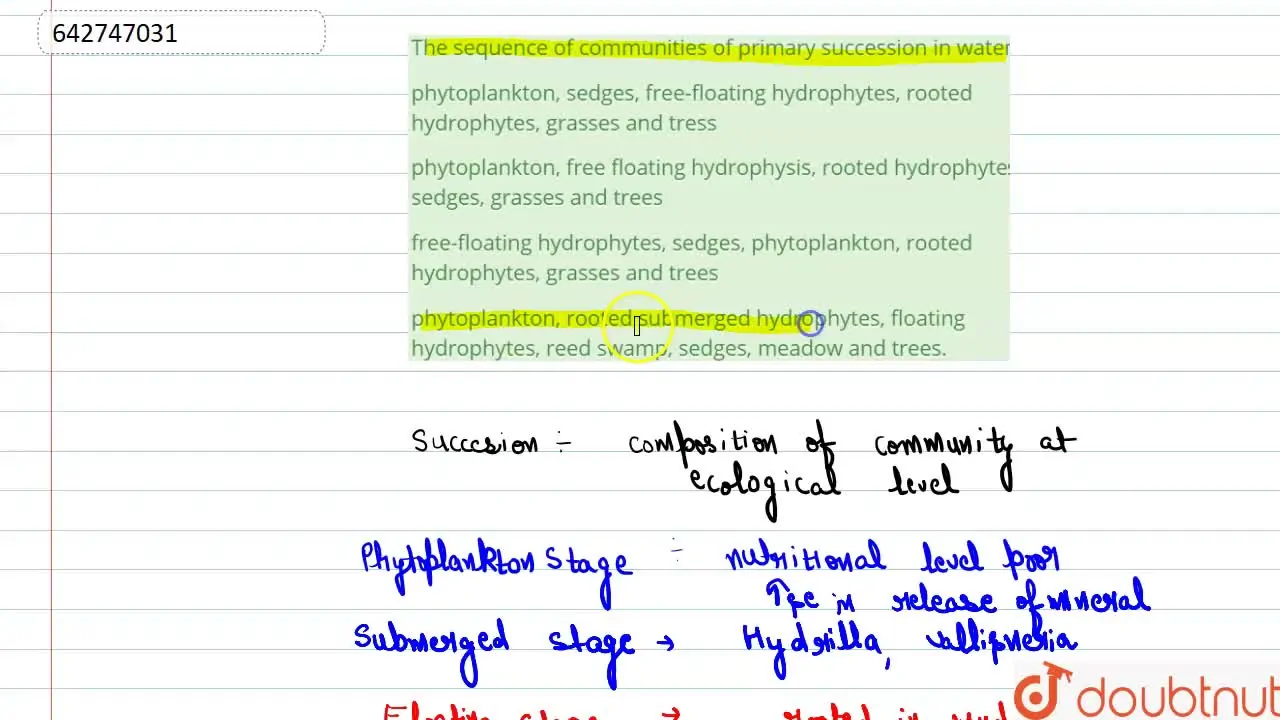 642747031
The sequence of communities of primary succession in water
phytoplankton, sedges, free-floating hydrophytes, rooted
hydrophytes, grasses and tress
phytoplankton, free floating hydrophysis, rooted hydrophytes
sedges, grasses and trees
free-floating hydrophytes, sedges, phytoplankton, rooted
hydrophytes, grasses and trees
phytoplankton, rooted submerged hydrophytes, floating
hydrophytes, reed swamp, sedges, meadow and trees.
Succesion ÷ composition of community at
ecological level
Phytoplankton Stage ÷ nutritional level poor
in release of mineral
Submerged stage → Hydrilla, vallipneria
stage → rooted in
doubtnut